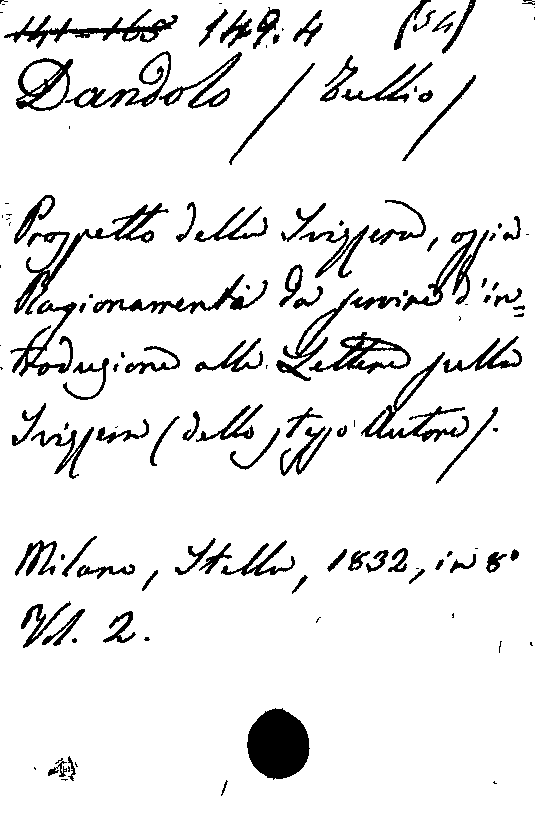 141-165 149. 4 (54)
Dandolo / Tullio /
Prospetto della Svizzera, ossia
Ragionamenti da servire d'in=
troduzione alle Lettere sulla
Svizzera (dello stesso Autore).
Milano, Stella, 1832, in 8°
Vol. 2.